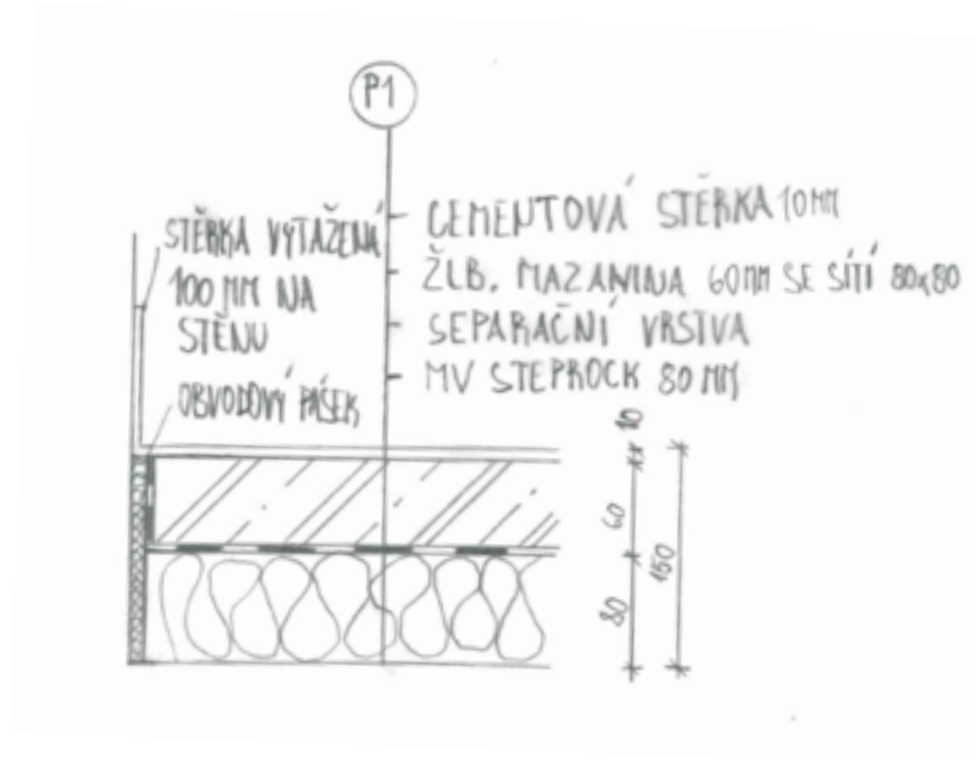 P1
STĚRKA VYTAŽENÁ
100 MM NA
STĚNU
OBVODOVÝ PÁSEK
CEMENTOVÁ STĚRKA 10MM
ŽLB. MAZANINA 60MM SE SÍTÍ 80x80
SEPARAČNÍ VRSTVA
MV STEPROCK 80 MM
10
60
80
150